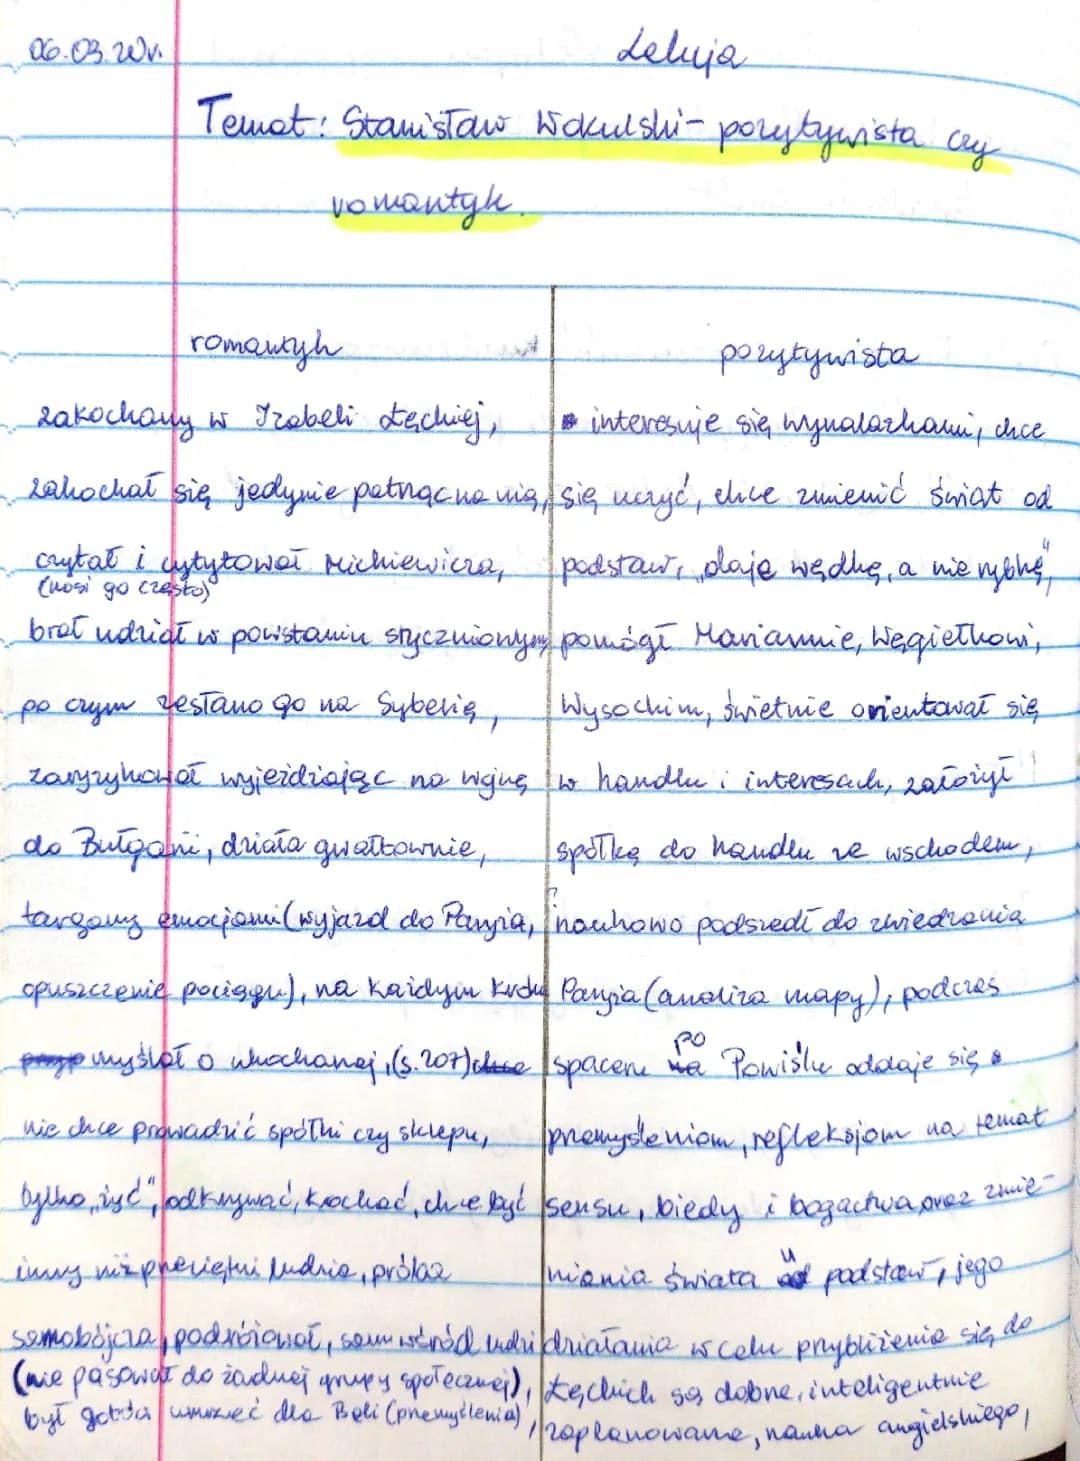 06.03.20r.
Lekcja
Temat: Stanisław Wokulski- pozytywista czy
romantyk.
romantyk
zakochany w Izabeli Łęckiej,
zakochał się jedynie patrząc na nią,
czytał i cytytował Mickiewicza,
(nosi go często)
brał udział w powstaniu styczniowym,
po czym zesłano go na Syberię,
zaryzykował wyjeżdżając na wojnę
do Bułgarii, działa gwałtownie,
targany emocjami (wyjazd do Paryża,
opuszczenie pociągu), na każdym kroku
myślał o ukochanej, (s. 207)
nie chce prowadzić spółki czy sklepu,
tylko „żyć", odkrywać, kochać, chce być
inny niż przeciętni ludzie, próba
samobójcza, podróżował, sam wśród ludzi
(nie pasował do żadnej grupy społecznej),
był gotów umrzeć dla Beli (przemyślenia),
pozytywista
interesuje się wynalazkami, chce
się uczyć, chce zmienić świat od
podstaw, „daje wędkę, a nie rybkę",
pomógł Mariannie, Węgiełkowi,
Wysockim, świetnie orientował się
w handlu i interesach, założył
spółkę do handlu ze wschodem,
naukowo podszedł do zwiedzania
Paryża (analiza mapy), podczas
spaceru po Powiślu oddaje się
przemyśleniom, refleksjom na temat
sensu, biedy i bogactwa oraz zmie-
niania świata u podstaw, jego
działania w celu przybliżenia się do
Łęckich są dobrze, inteligentnie
zaplanowane, nauka angielskiego,